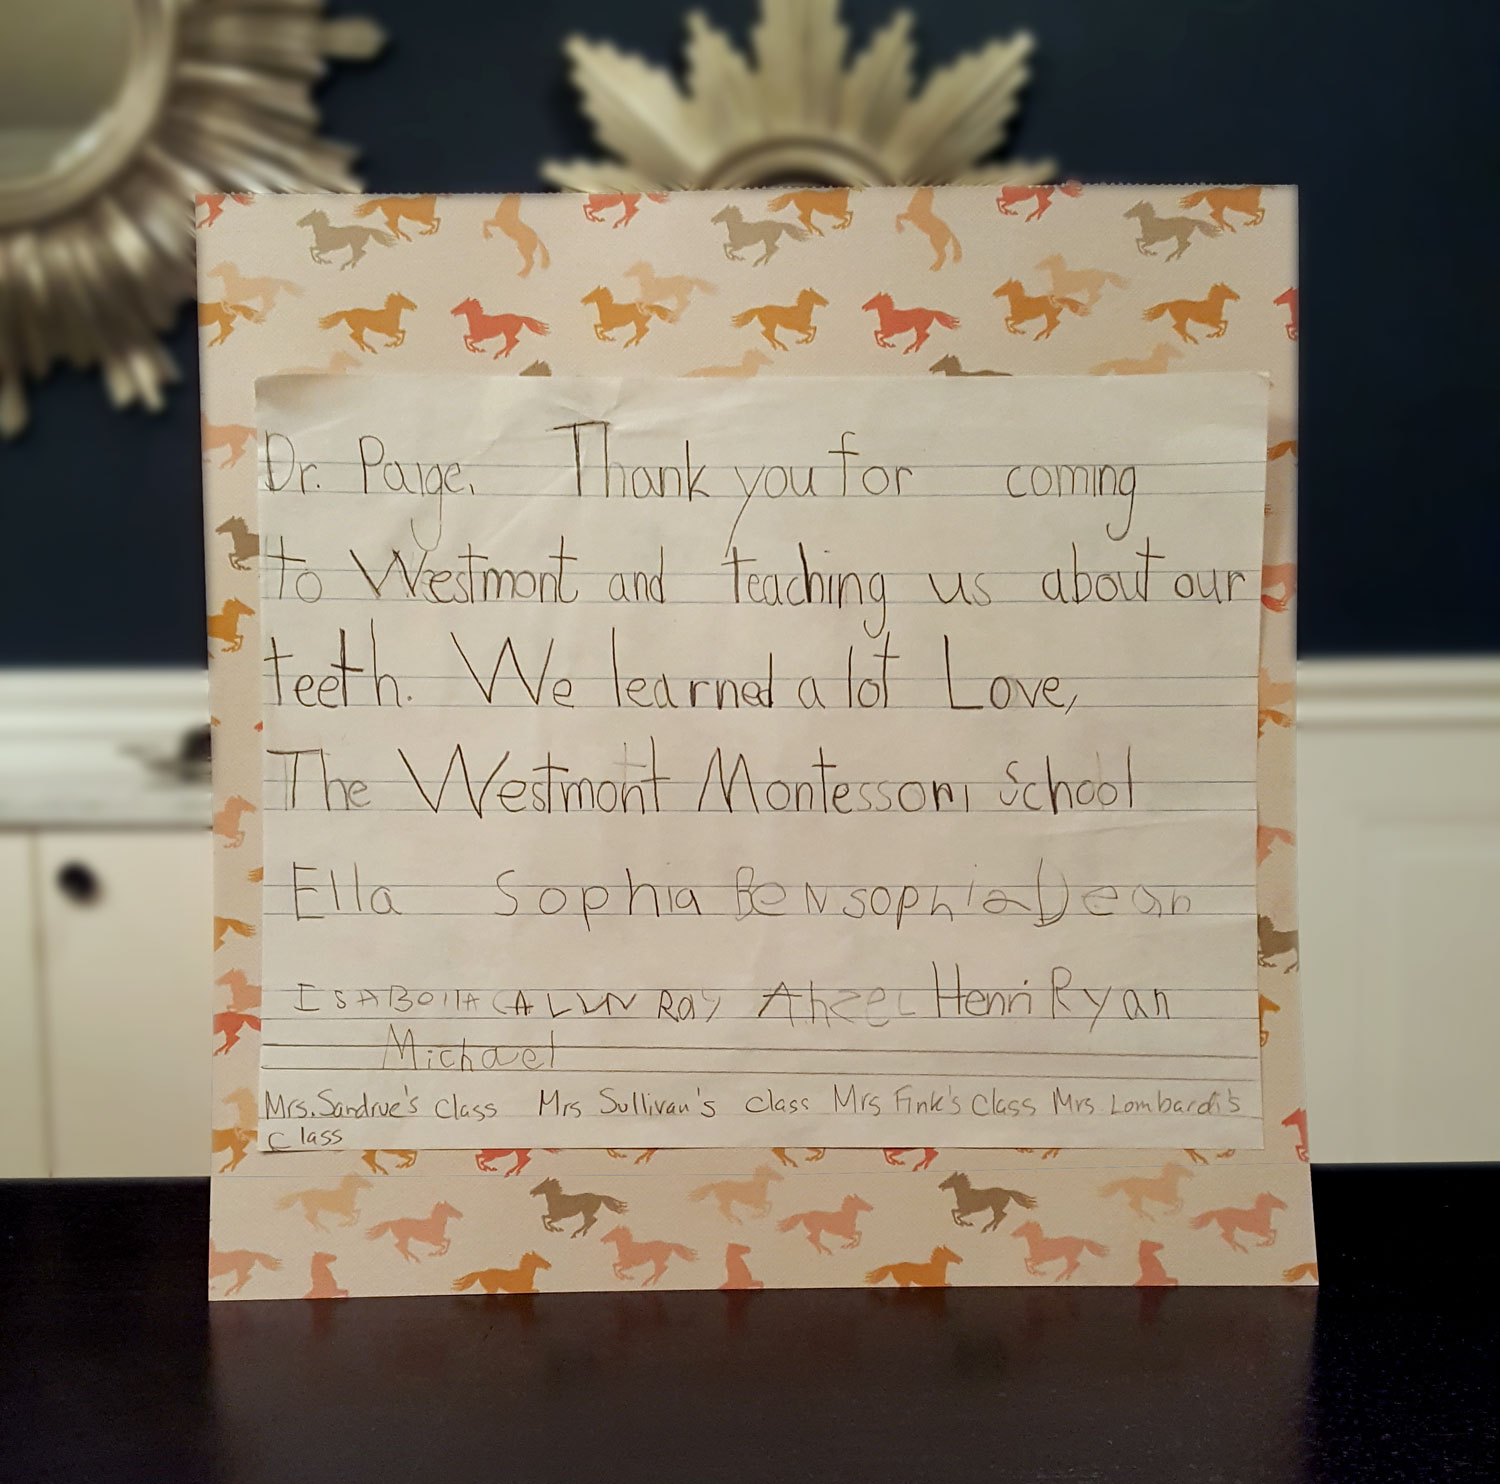 Dr. Paige, Thank you for coming
to Westmont and teaching us about our
teeth. We learned a lot Love,
The Westmont Montessori School
Ella Sophia BeN sophia Dean
ISABollA CALVIN RAy Henri Ryan
Michael
Mrs. Sandrue's Class Mrs Sullivan's class Mrs Fink's Class Mrs. Lombardi's
Class